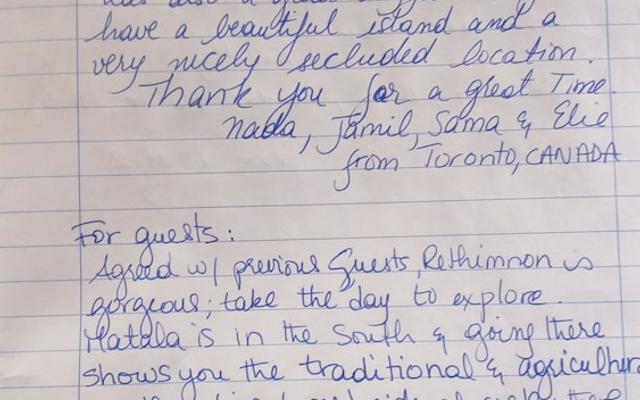 have a beautiful island and a
very nicely secluded location.
Thank you for a great Time.
Nada, Jamil, Sama & Elie
from Toronto, CANADA
For guests:
Agreed w/ previous Guests, Rethimnon is
gorgeous; take the day to explore.
Matala is in the South & going there
shows you the traditional &